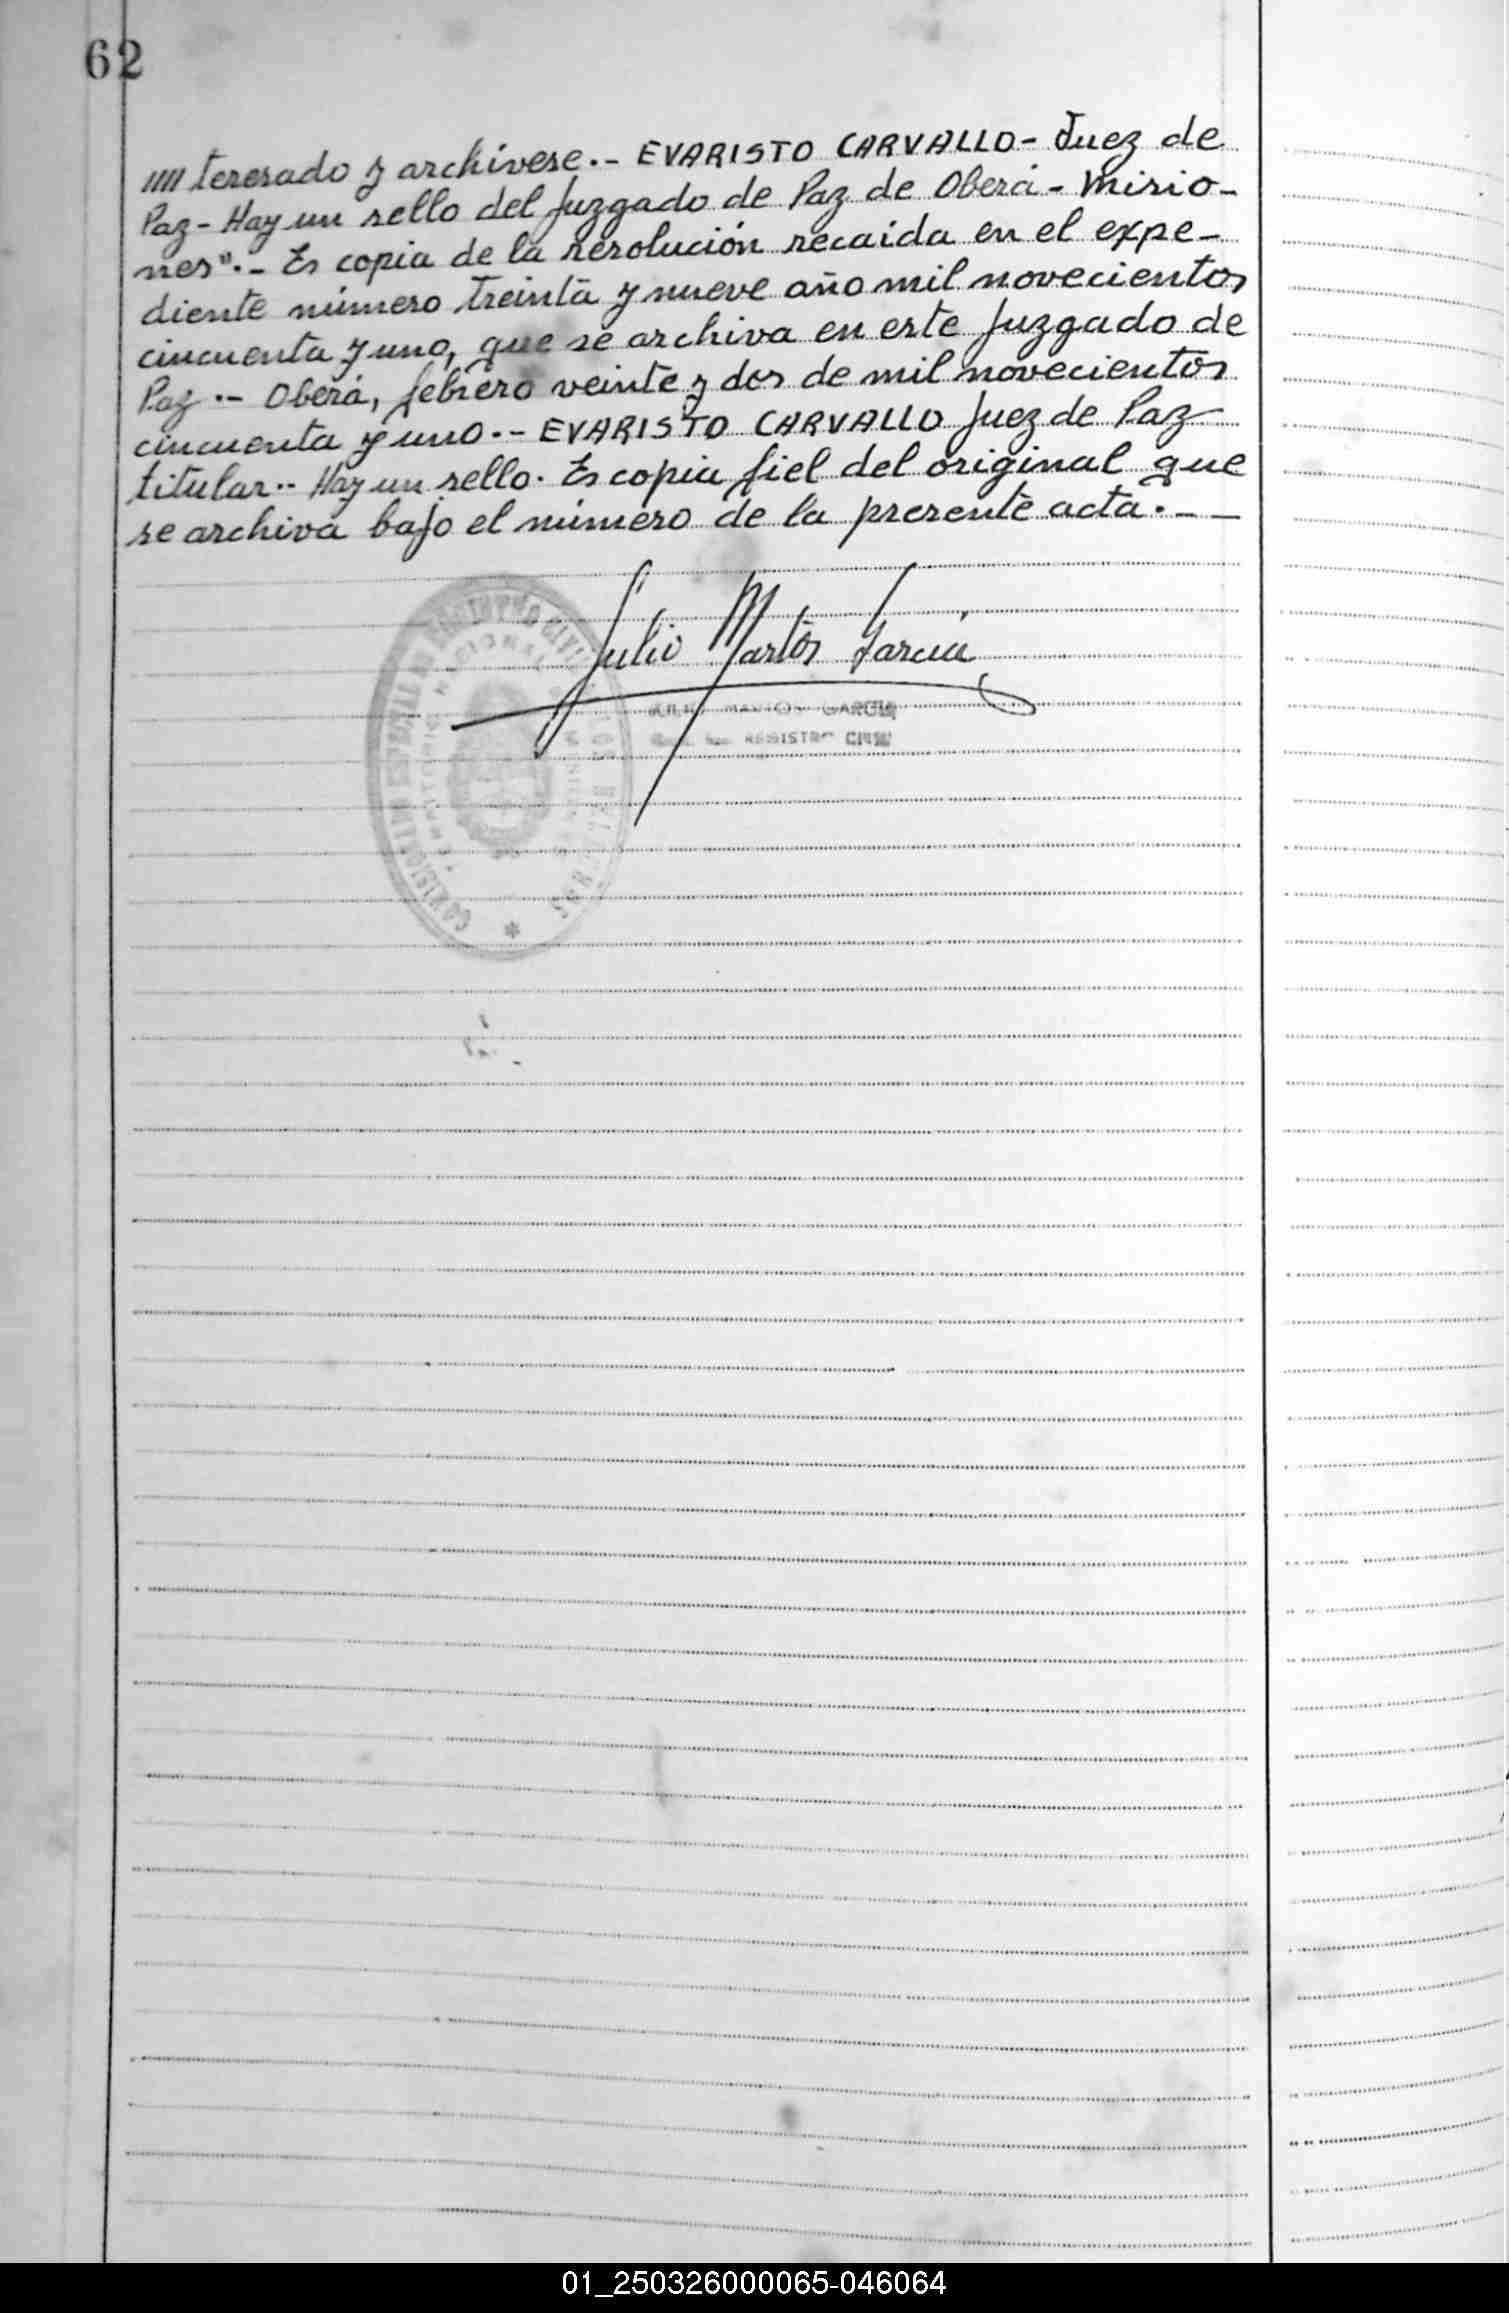 62
//// teresado y archívese.- EVARISTO CARVALLO- Juez de
Paz- Hay un sello del Juzgado de Paz de Oberá- Misio-
nes".- Es copia de la resolución recaída en el expe-
diente número treinta y nueve año mil novecientos
cincuenta y uno, que se archiva en este Juzgado de
Paz.- Oberá, febrero veinte y dos de mil novecientos
cincuenta y uno.- EVARISTO CARVALLO Juez de Paz
titular.- Hay un sello. Es copia fiel del original que
se archiva bajo el número de la presente acta.- -
Julio Martos García
JULIO MARTOS GARCIA
REGISTRO CIVIL
01_250326000065-046064